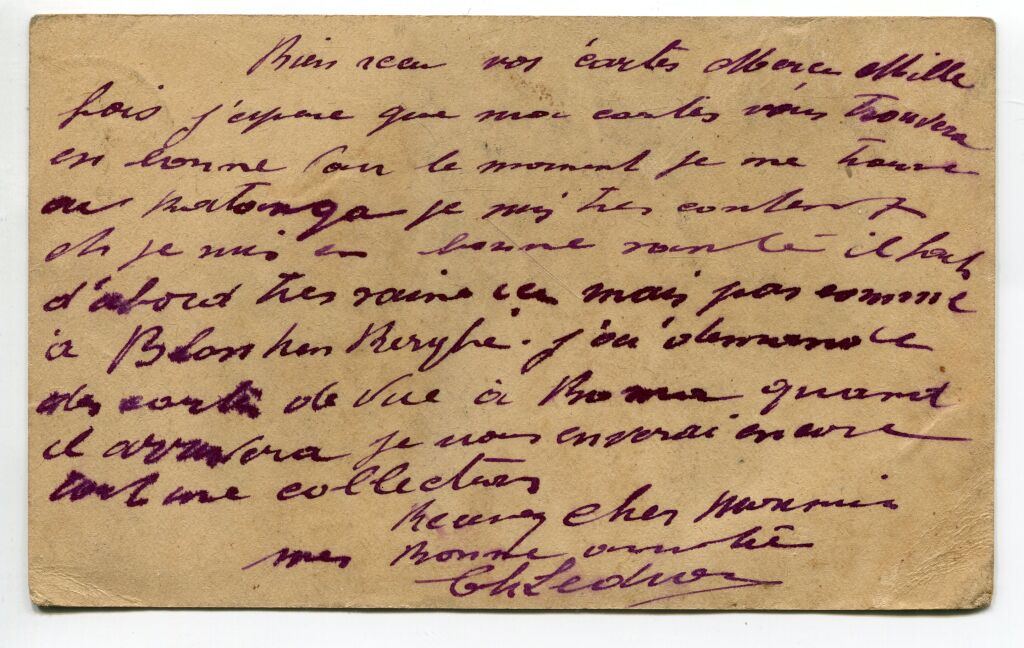 Bien recu vos cartes Merci Mille
fois j'espere que mes cartes vous trouvera
en bonne le moment je me trouve
au Katanga je suis tres content
et je suis en bonne santé il fait
d'abord tres saine ici mais pas comme
à Blankenberghe. j'ai demande
des carte de vue à Boma quand
il arrivera je vous enverai encore
tout une collection
Recevez cher
mes Bonne amitié
Ch Leduc